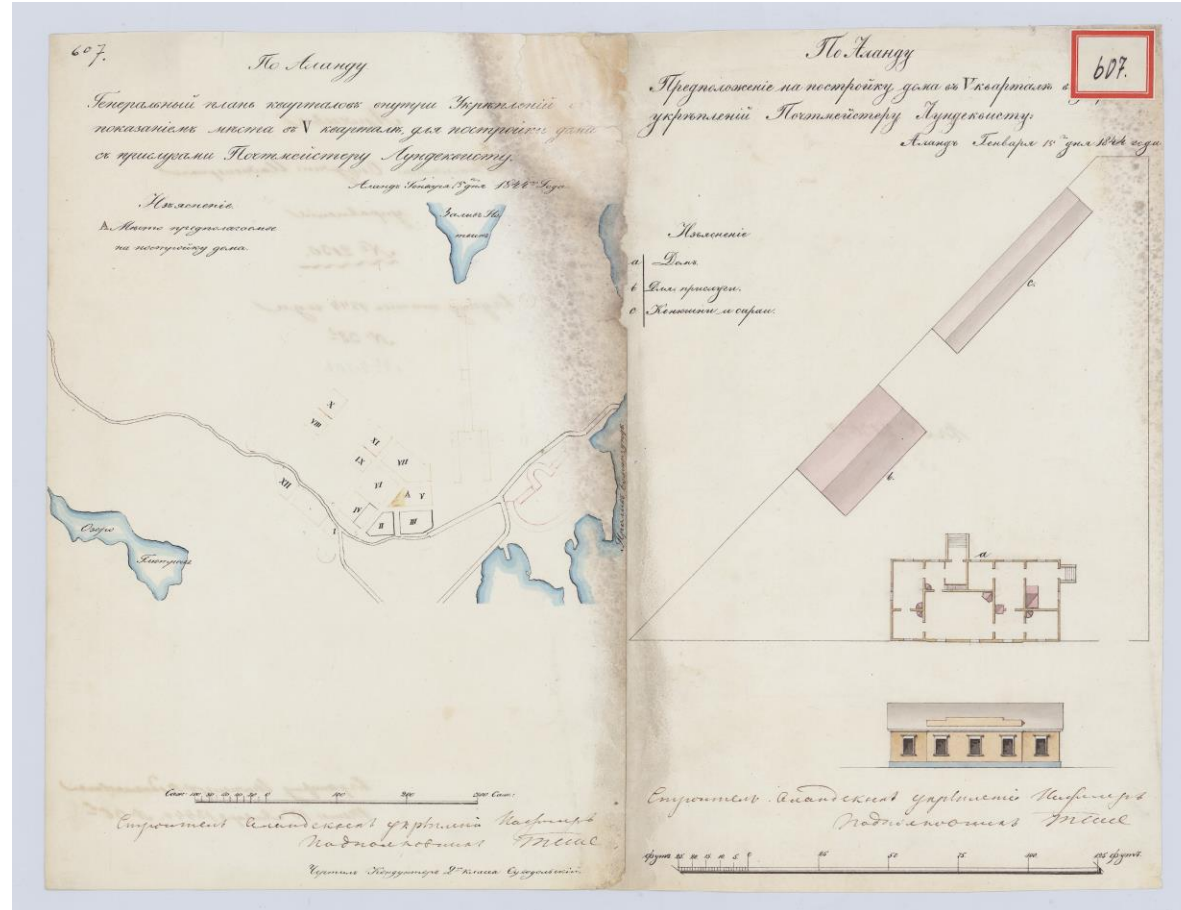 607.
По Аланду
Генеральный планъ кварталовъ внутри Укрѣпленій съ
показаніемъ мѣста въ V кварталѣ, для постройки дома
съ прислугами Почтмейстеру Лундеквисту.
Аландъ Генваря 15 дня 1844 года
Изъясненіе.
А. Мѣсто предполагаемое
на постройку дома.
Заливъ
X
VIII
XI
IX
VII
XII
VI
А
V
IV
II
III
Озеро
Саж: 50 40 30 20 10 0 100 200 300 Саж:
Строитель Аландскихъ укрѣпленій Инженеръ
Подполковникъ
Чертилъ Кондукторъ 2го класса
По Аланду
607.
Предположеніе на постройку дома въ V кварталѣ
укрѣпленій Почтмейстеру Лундеквисту.
Аландъ Генваря 15 дня 1844 года
Изъясненіе
а Домъ
b Для прислуги.
с Конюшни и сараи.
c.
b.
a
Строитель Аландскихъ укрѣпленій Инженеръ
Подполковникъ
футъ 25 20 15 10 5 0 25 50 75 100 125 футъ.